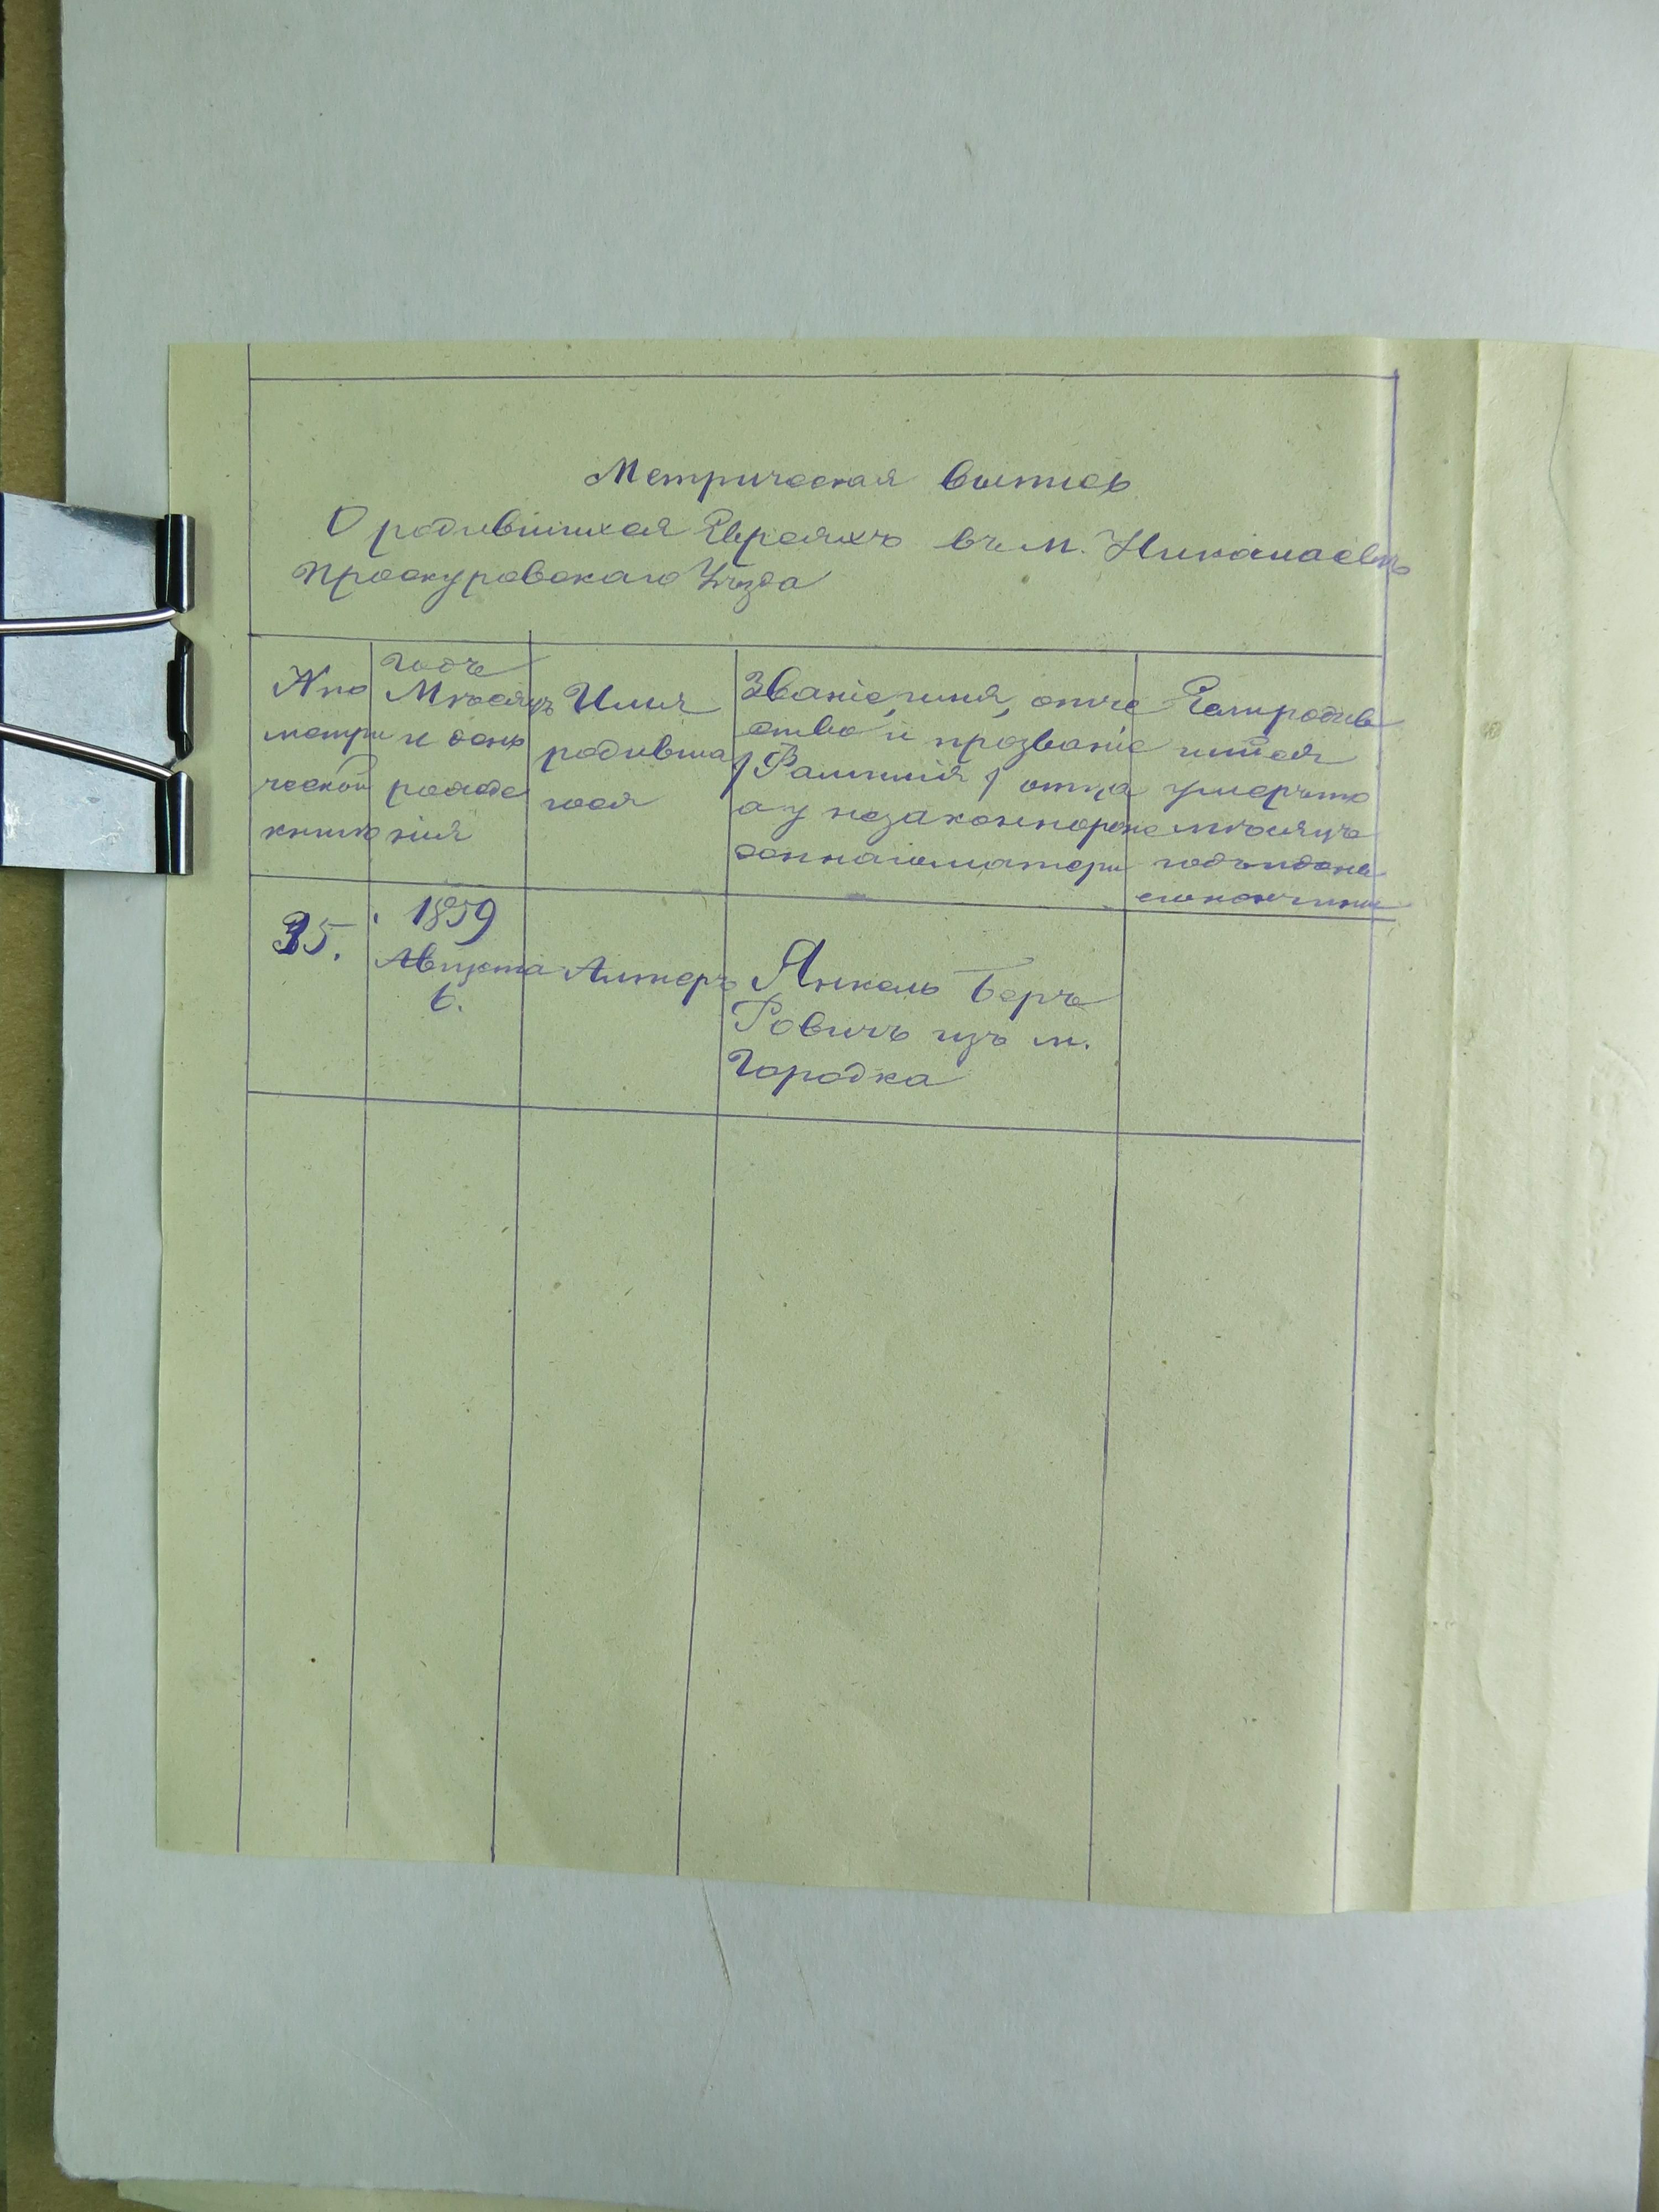 Метрическая выпись
О родившихся Евреяхъ въ м. Николаевѣ
Проскуровскаго Уѣзда
№ по
метри
ческой
книгѣ
Годъ
Мѣсяцъ
и день
рожде
нія
Имя
родивша
гося
Званіе, имя, отче
ство и прозваніе
/Фамилія/ отца
а у незаконнорож
деннаго матери
Если родив
шійся
умеръ то
мѣсяцъ
годъ и день
его кончины
35.
1859
Августа
6.
Алтеръ
Янкель Беръ
Ровичъ изъ м.
Городка